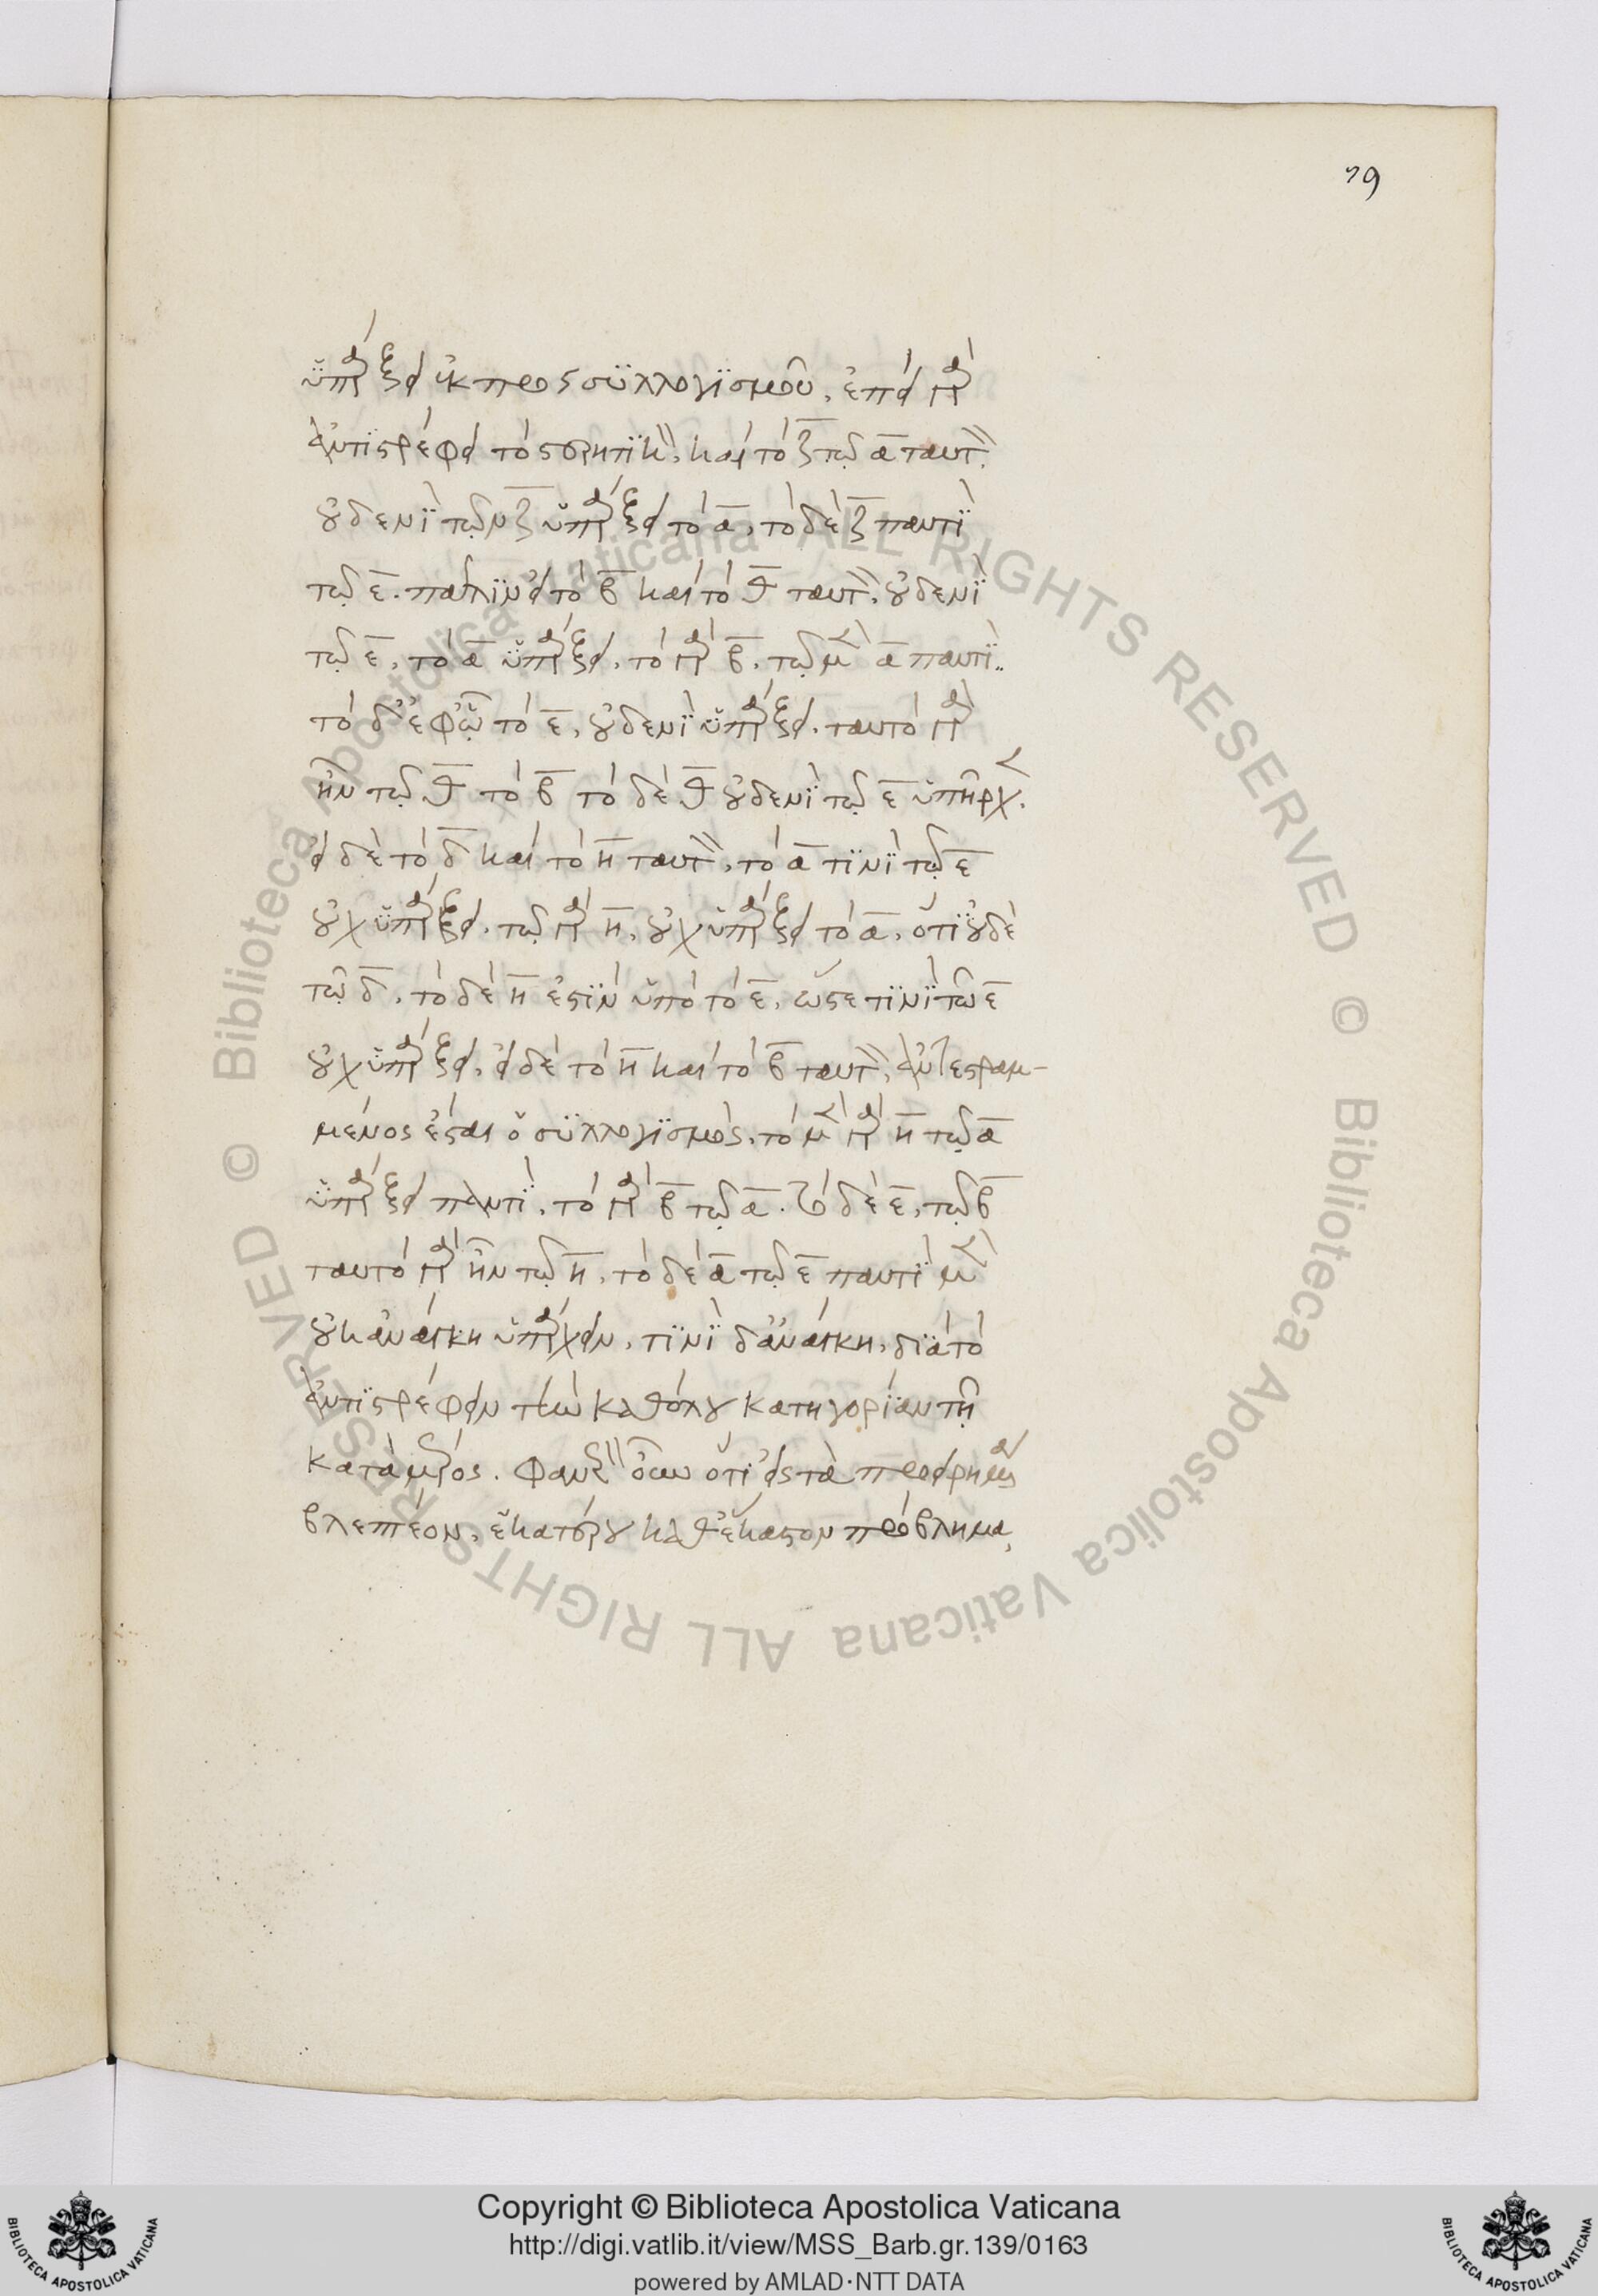 79
ὑπάρξει ἐκ προσυλλογισμοῦ, ἐπεὶ γὰρ
ἀντιστρέφει τὸ στερητικὸν, καὶ τὸ ζ τῶ α ταυτὸν.
οὐδενὶ τῶν ζ ὑπάρξει τὸ α, τὸ δὲ ζ παντὶ
τῶ ε. πάλιν εἰ τὸ β καὶ τὸ θ ταυτὸν, οὐδενὶ
τῶ ε, τὸ α ὑπάρξει, τὸ γὰρ β, τῶ μὲν α παντὶ..
τὸ δ' ἐφ ὧ τὸ ε, οὐδενὶ ὑπάρξει. ταυτὸ γὰρ
ἦν τῶ θ τὸ β τὸ δὲ θ οὐδενὶ τῶ ε ὑπῆρχεν.
εἰ δὲ τὸ δ καὶ τὸ η ταυτὸν, τὸ α τινὶ τῶ ε
οὐχ ὑπάρξει. τῶ γὰρ η, οὐχ ὑπάρξει τὸ α, ὅτι οὐδὲ
τῶ δ, τὸ δὲ η ἐστὶν ὑπὸ τὸ ε, ὥστε τινὶ τῶ ε
οὐχ ὑπάρξει, εἰ δὲ τὸ η καὶ τὸ β ταυτὸν, ἀντεστραμ-
μένος ἔσται ὁ συλλογισμός, τὸ μὲν γὰρ η τῶ α
ὑπάρξει παντὶ, τὸ γὰρ β τῶ α. τὸ δὲ ε, τῶ β
ταυτὸ γὰρ ἦν τῶ η, τὸ δὲ α τῶ ε παντὶ μὲν
οὐκ ἀνάγκη ὑπάρχειν, τινὶ δ' ἀνάγκη, διὰ τὸ
ἀντιστρέφειν τὴν καθόλου κατηγορίαν τῆ
κατὰ μέρος. φανερὸν οὖν ὅτι εἰς τὰ προειρημένα
βλεπτέον, ἑκατέρου καθ' ἕκαστον πρόβλημα,
Copyright © Biblioteca Apostolica Vaticana
http://digi.vatlib.it/view/MSS_Barb.gr.139/0163
powered by AMLAD·NTT DATA
BIBLIOTECA APOSTOLICA VATICANA
BIBLIOTECA APOSTOLICA VATICANA
© Biblioteca Apostolica Vaticana ALL RIGHTS RESERVED © Biblioteca Apostolica Vaticana ALL RIGHTS RESERVED